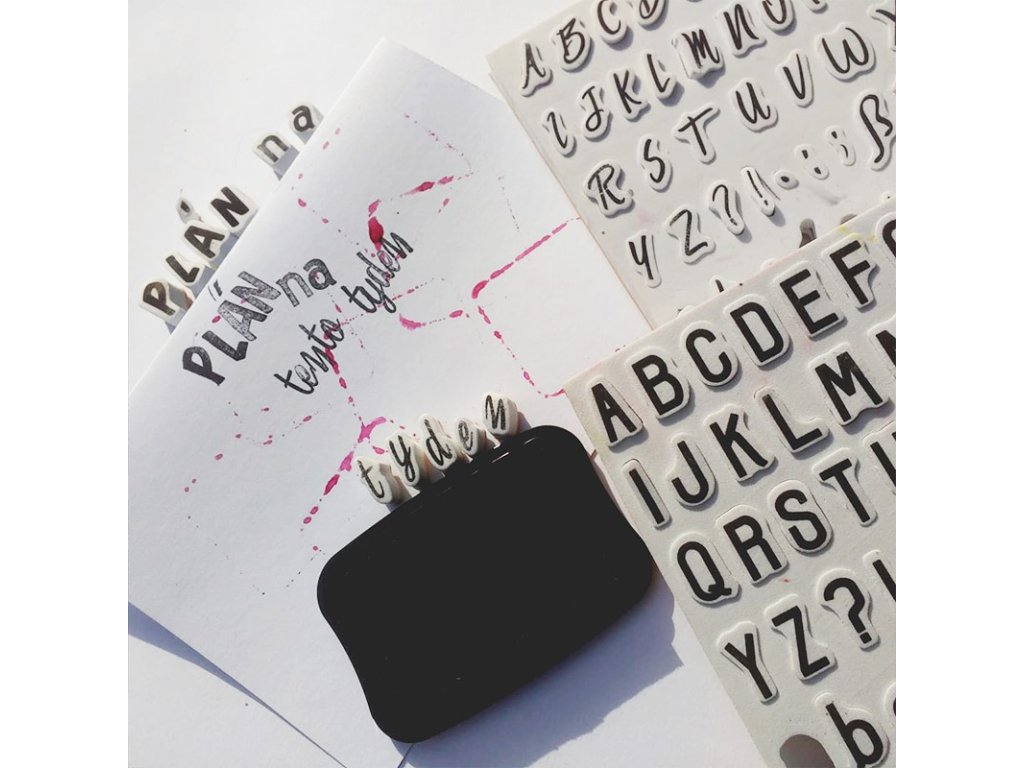 PLÁN na
PLÁN na
tento tyden
tyden
A B C D
I J K L M N O
R S T U V W
Y Z ? ! . : ; ß
A B C D E F
I J K L M
Q R S T
Y Z ? !
b